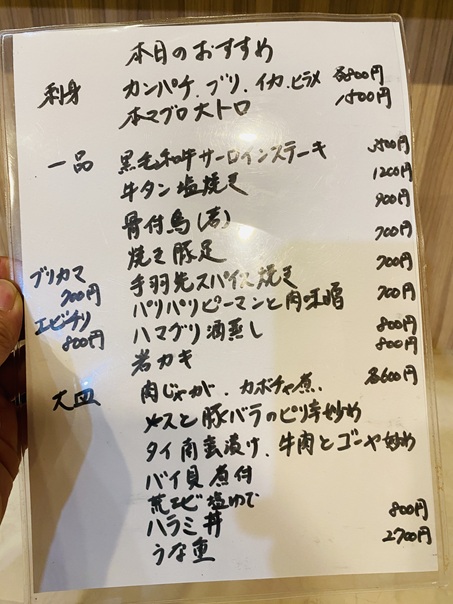 本日のおすすめ
刺身 カンパチ、ブリ、イカ、ヒラメ 各800円
本マグロ大トロ 1500円
一品 黒毛和牛サーロインステーキ
牛タン塩焼き 1200円
骨付鳥(若) 900円
焼き豚足 700円
手羽先スパイス焼き 700円
パリパリピーマンと肉味噌 700円
ハマグリ酒蒸し 800円
岩カキ 800円
ブリカマ
700円
エビチリ
800円
大皿 肉じゃが、カボチャ煮、 各600円
ナスと豚バラのピリ辛炒め
タイ南蛮漬け、牛肉とゴーヤ炒め
バイ貝煮付
エビ塩ゆで
ハラミ丼 800円
うな重 2700円